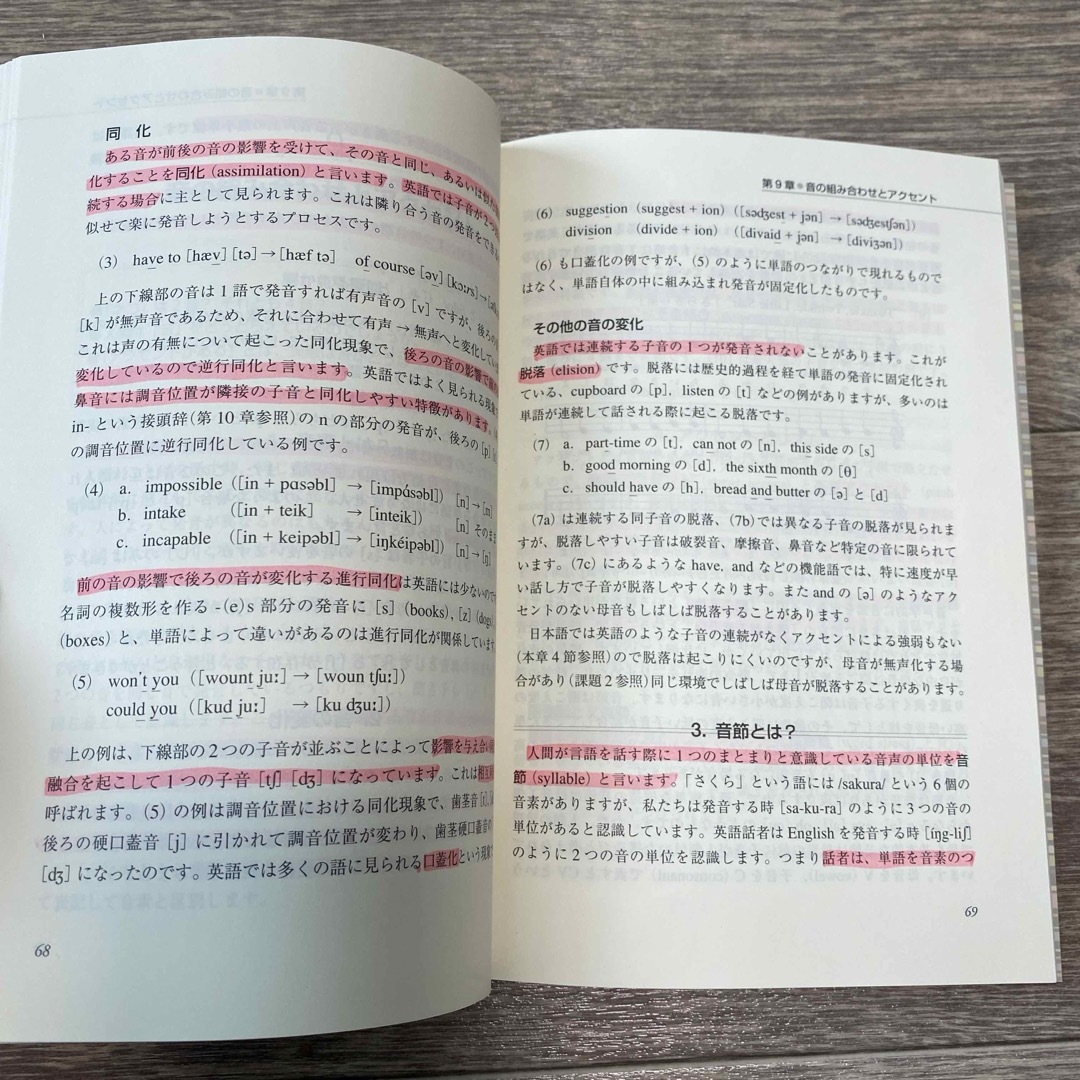 同 化
ある音が前後の音の影響を受けて、その音と同じ、あるいは
化することを同化(assimilation)と言います。英語では子音が2つ
続する場合に主として見られます。これは隣り合う音の発音をできる
似せて楽に発音しようとするプロセスです。
(3) have to [hæv] [tə] → [hæf tə] of course [əv] [kɔːrs] →
上の下線部の音は1語で発音すれば有声音の [v] ですが、後ろの
[k] が無声音であるため、それに合わせて有声 → 無声へと変化してい
これは声の有無について起こった同化現象で、後ろの音の影響で前の
変化しているので逆行同化と言います。英語ではよく見られる現象
鼻音には調音位置が隣接の子音と同化しやすい特徴があります。
in- という接頭辞(第10章参照)の n の部分の発音が、後ろの [p]
の調音位置に逆行同化している例です。
(4) a. impossible ([in + pɑsəbl] → [impɑ́səbl]) [n] → [m]
b. intake ([in + teik] → [inteik]) [n] そのまま
c. incapable ([in + keipəbl] → [iŋkéipəbl]) [n] → [ŋ]
前の音の影響で後ろの音が変化する進行同化は英語には少ないので
名詞の複数形を作る -(e)s 部分の発音に [s] (books), [z] (dogs)
(boxes) と、単語によって違いがあるのは進行同化が関係しています
(5) won't you ([wount juː] → [woun tʃuː])
could you ([kud juː] → [ku dʒuː])
上の例は、下線部の2つの子音が並ぶことによって影響を与え合い
融合を起こして1つの子音 [tʃ] [dʒ] になっています。これは相互
呼ばれます。(5) の例は調音位置における同化現象で、歯茎音 [t],
後ろの硬口蓋音 [j] に引かれて調音位置が変わり、歯茎硬口蓋音の
[dʒ] になったのです。英語では多くの語に見られる口蓋化という現象
68
第9章●音の組み合わせとアクセント
(6) suggestion (suggest + ion) ([sədʒest + jən] → [sədʒestʃən])
division (divide + ion) ([divaid + jən] → [diviʒən])
(6) も口蓋化の例ですが、(5) のように単語のつながりで現れるもので
はなく、単語自体の中に組み込まれ発音が固定化したものです。
その他の音の変化
英語では連続する子音の1つが発音されないことがあります。これが
脱落 (elision) です。脱落には歴史的過程を経て単語の発音に固定化され
ている、cupboard の [p], listen の [t] などの例がありますが、多いのは
単語が連続して話される際に起こる脱落です。
(7) a. part-time の [t], can not の [n], this side の [s]
b. good morning の [d], the sixth month の [θ]
c. should have の [h], bread and butter の [ə] と [d]
(7a) は連続する同子音の脱落、(7b) では異なる子音の脱落が見られま
すが、脱落しやすい子音は破裂音、摩擦音、鼻音など特定の音に限られて
います。(7c) にあるような have, and などの機能語では、特に速度が早
い話し方で子音が脱落しやすくなります。また and の [ə] のようなアク
セントのない母音もしばしば脱落することがあります。
日本語では英語のような子音の連続がなくアクセントによる強弱もない
(本章4節参照) ので脱落は起こりにくいのですが、母音が無声化する場
合があり (課題2参照) 同じ環境でしばしば母音が脱落することがあります。
3. 音節とは?
人間が言語を話す際に1つのまとまりと意識している音声の単位を音
節 (syllable) と言います。「さくら」という語には /sakura/ という6個の
音素がありますが、私たちは発音する時 [sa-ku-ra] のように3つの音の
単位があると認識しています。英語話者は English を発音する時 [íŋg-liʃ]
のように2つの音の単位を認識します。つまり話者は、単語を音素のつ
69